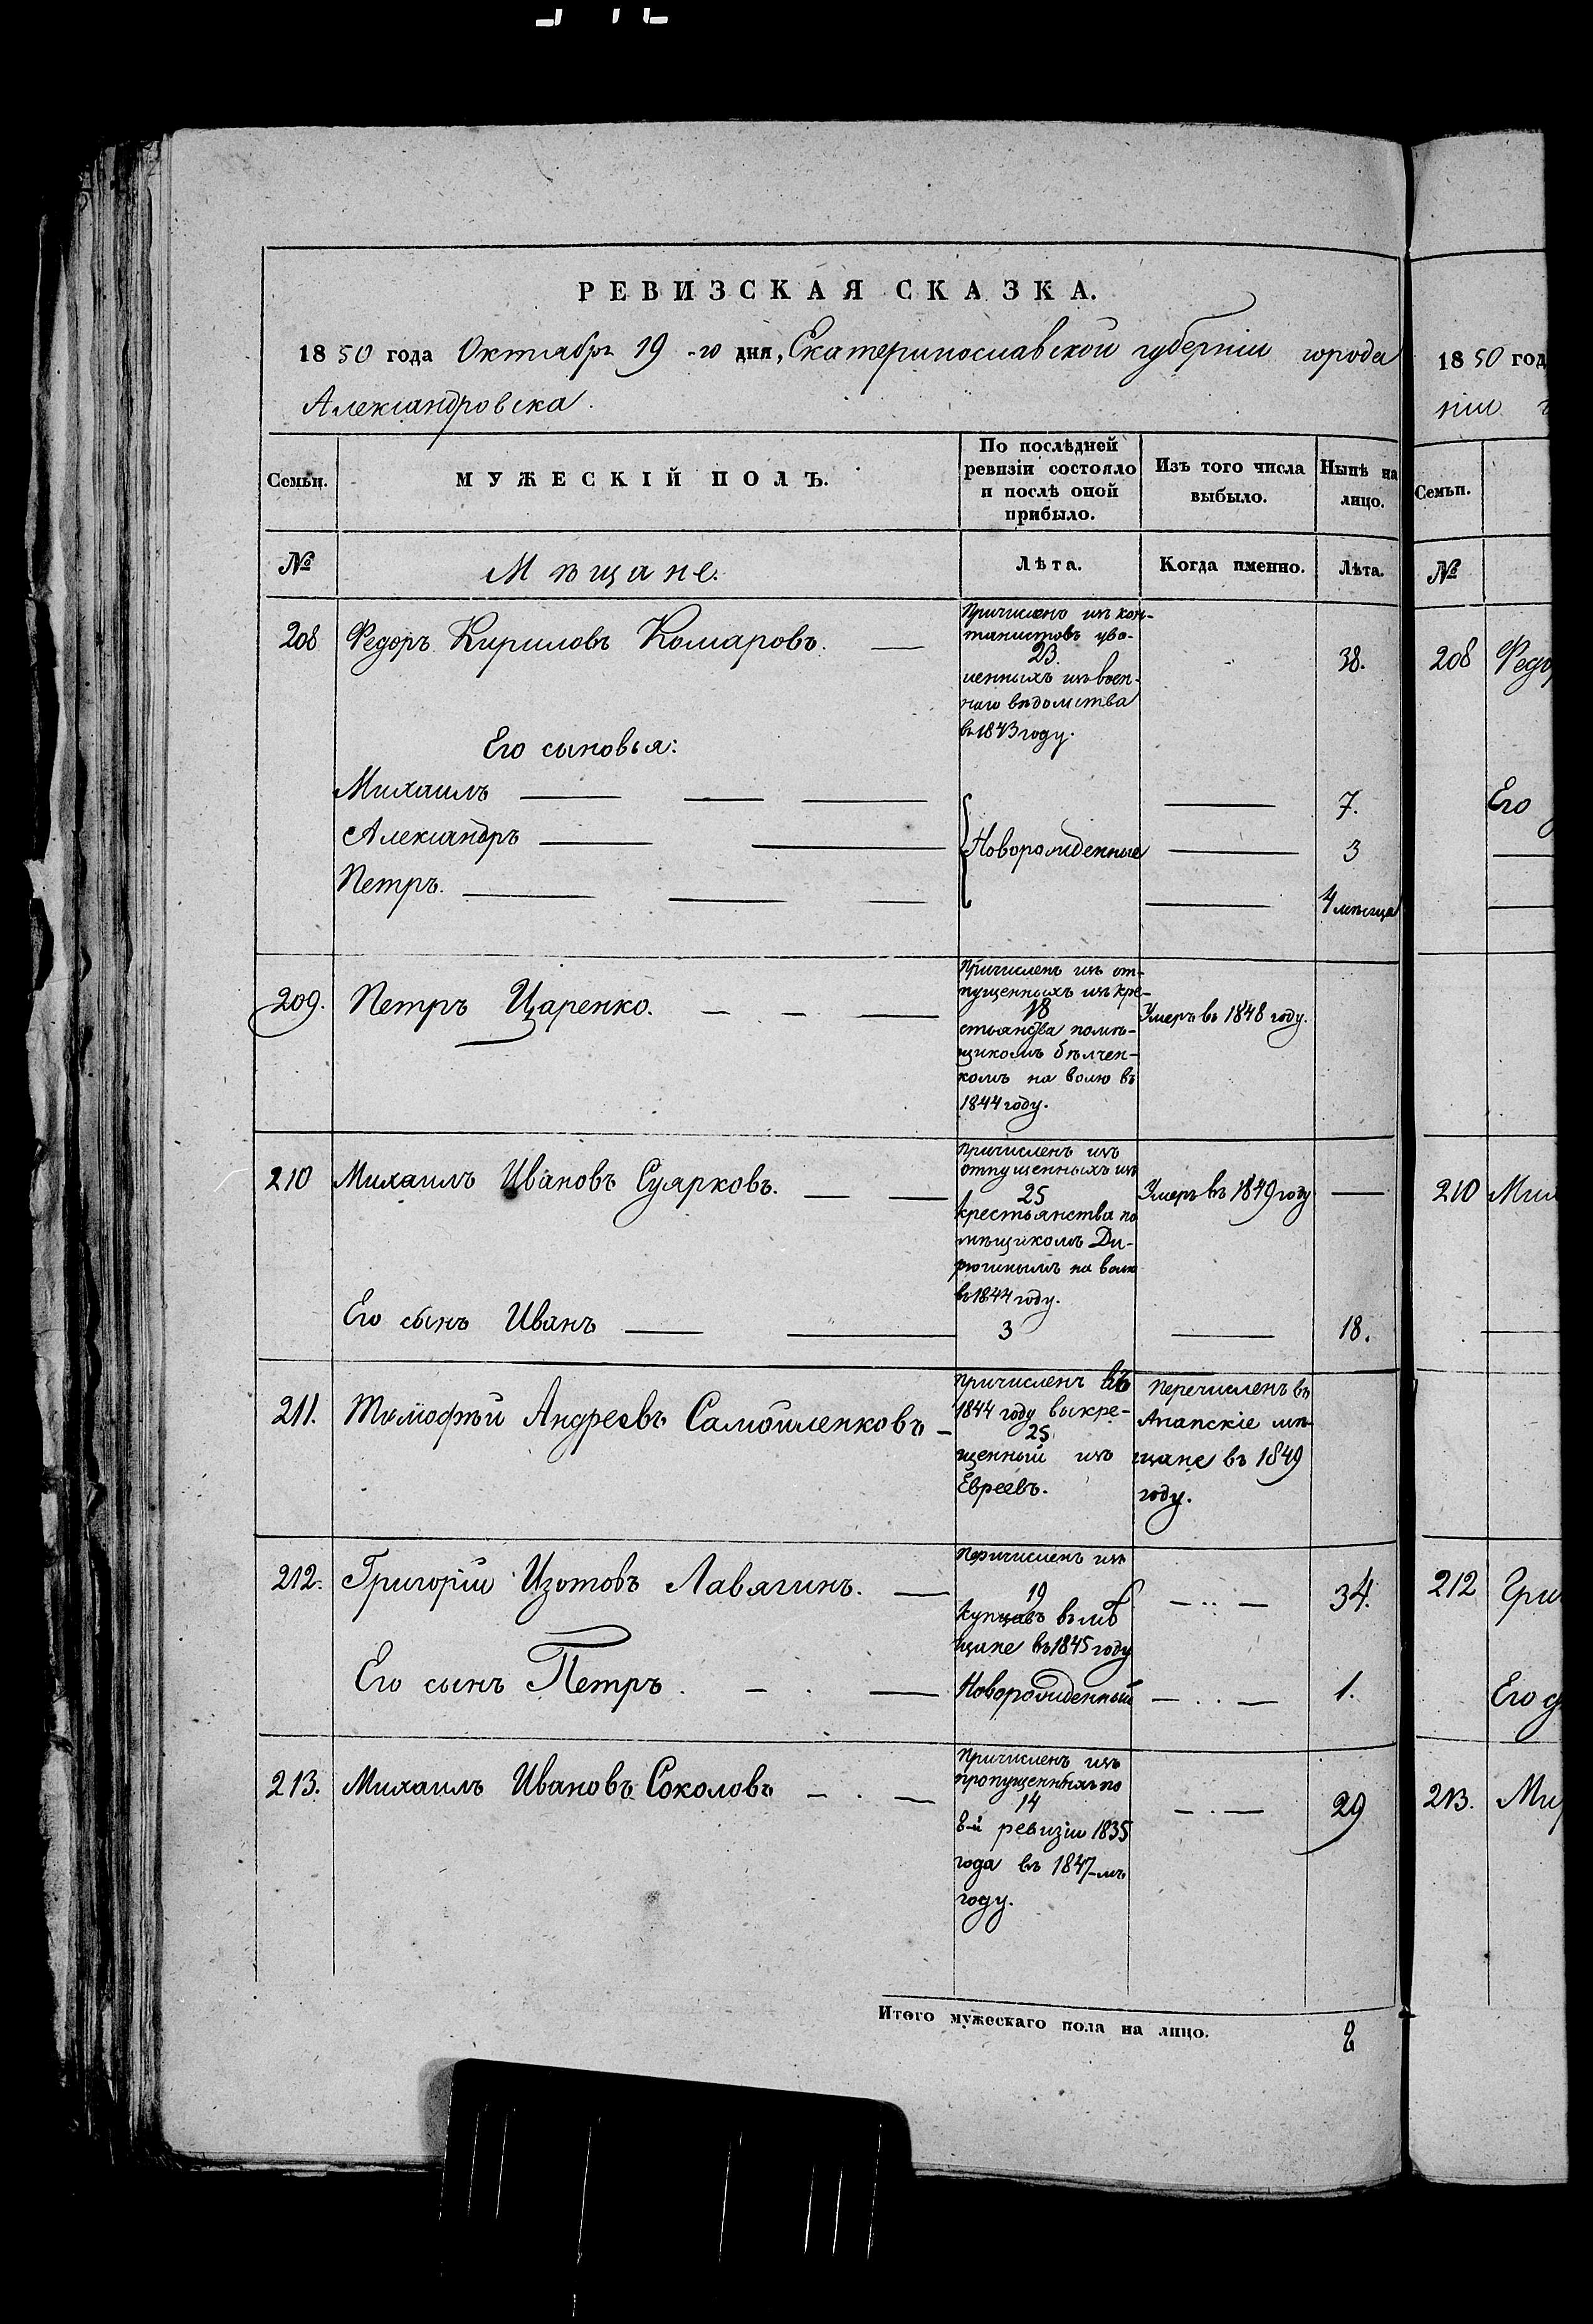 РЕВИЗСКАЯ СКАЗКА.
1850 года Октября 19-го дня, Екатеринославской губерніи города
Александровска.
Семьи.
МУЖЕСКІЙ ПОЛЪ.
По послѣдней
ревизіи состояло
и послѣ оной
прибыло.
Изъ того числа
выбыло.
Нынѣ на
лицо.
№
Мѣщане.
Лѣта.
Когда именно.
Лѣта.
208 Федоръ Кириловъ Комаровъ. 38.
Причисленъ изъ кан-
танистовъ уво-
23.
ленныхъ изъ воен-
наго вѣдомства
въ 1843 году.
Его сыновья:
Михаилъ 7.
Александръ Новорожденные 3
Петръ. 4 мѣсяца
209. Петръ Царенко. Умеръ въ 1848 году.
Причисленъ изъ от-
пущенныхъ изъ кре-
18
стьянства помѣ-
щикомъ
комъ на волю въ
1844 году.
210 Михаилъ Ивановъ Суярковъ. Умеръ въ 1849 году
Причисленъ изъ
отпущенныхъ изъ
25
крестьянства по
мѣщикомъ
на волю
въ 1844 году.
Его сынъ Иванъ 3 18.
211. Тимофѣй Андреевъ Самойленковъ
причисленъ въ
1844 году выкре-
25
щенный изъ
Евреевъ.
Перечисленъ въ
Анапскіе мѣ-
щане въ 1849
году.
212. Григорій Изотовъ Лавягинъ. 34.
Перичисленъ изъ
19
купцовъ въ мѣ
щане въ 1845 году
Его сынъ Петръ. Новорожденный 1.
213. Михаилъ Ивановъ Соколовъ 29
Причисленъ изъ
пропущенныхъ по
14
8-й ревизіи 1835
года въ 1847-мъ
году.
Итого мужескаго пола на лицо. 8
1850 год
ніи
Семьи.
№
208
Его
210
212
Его
213.